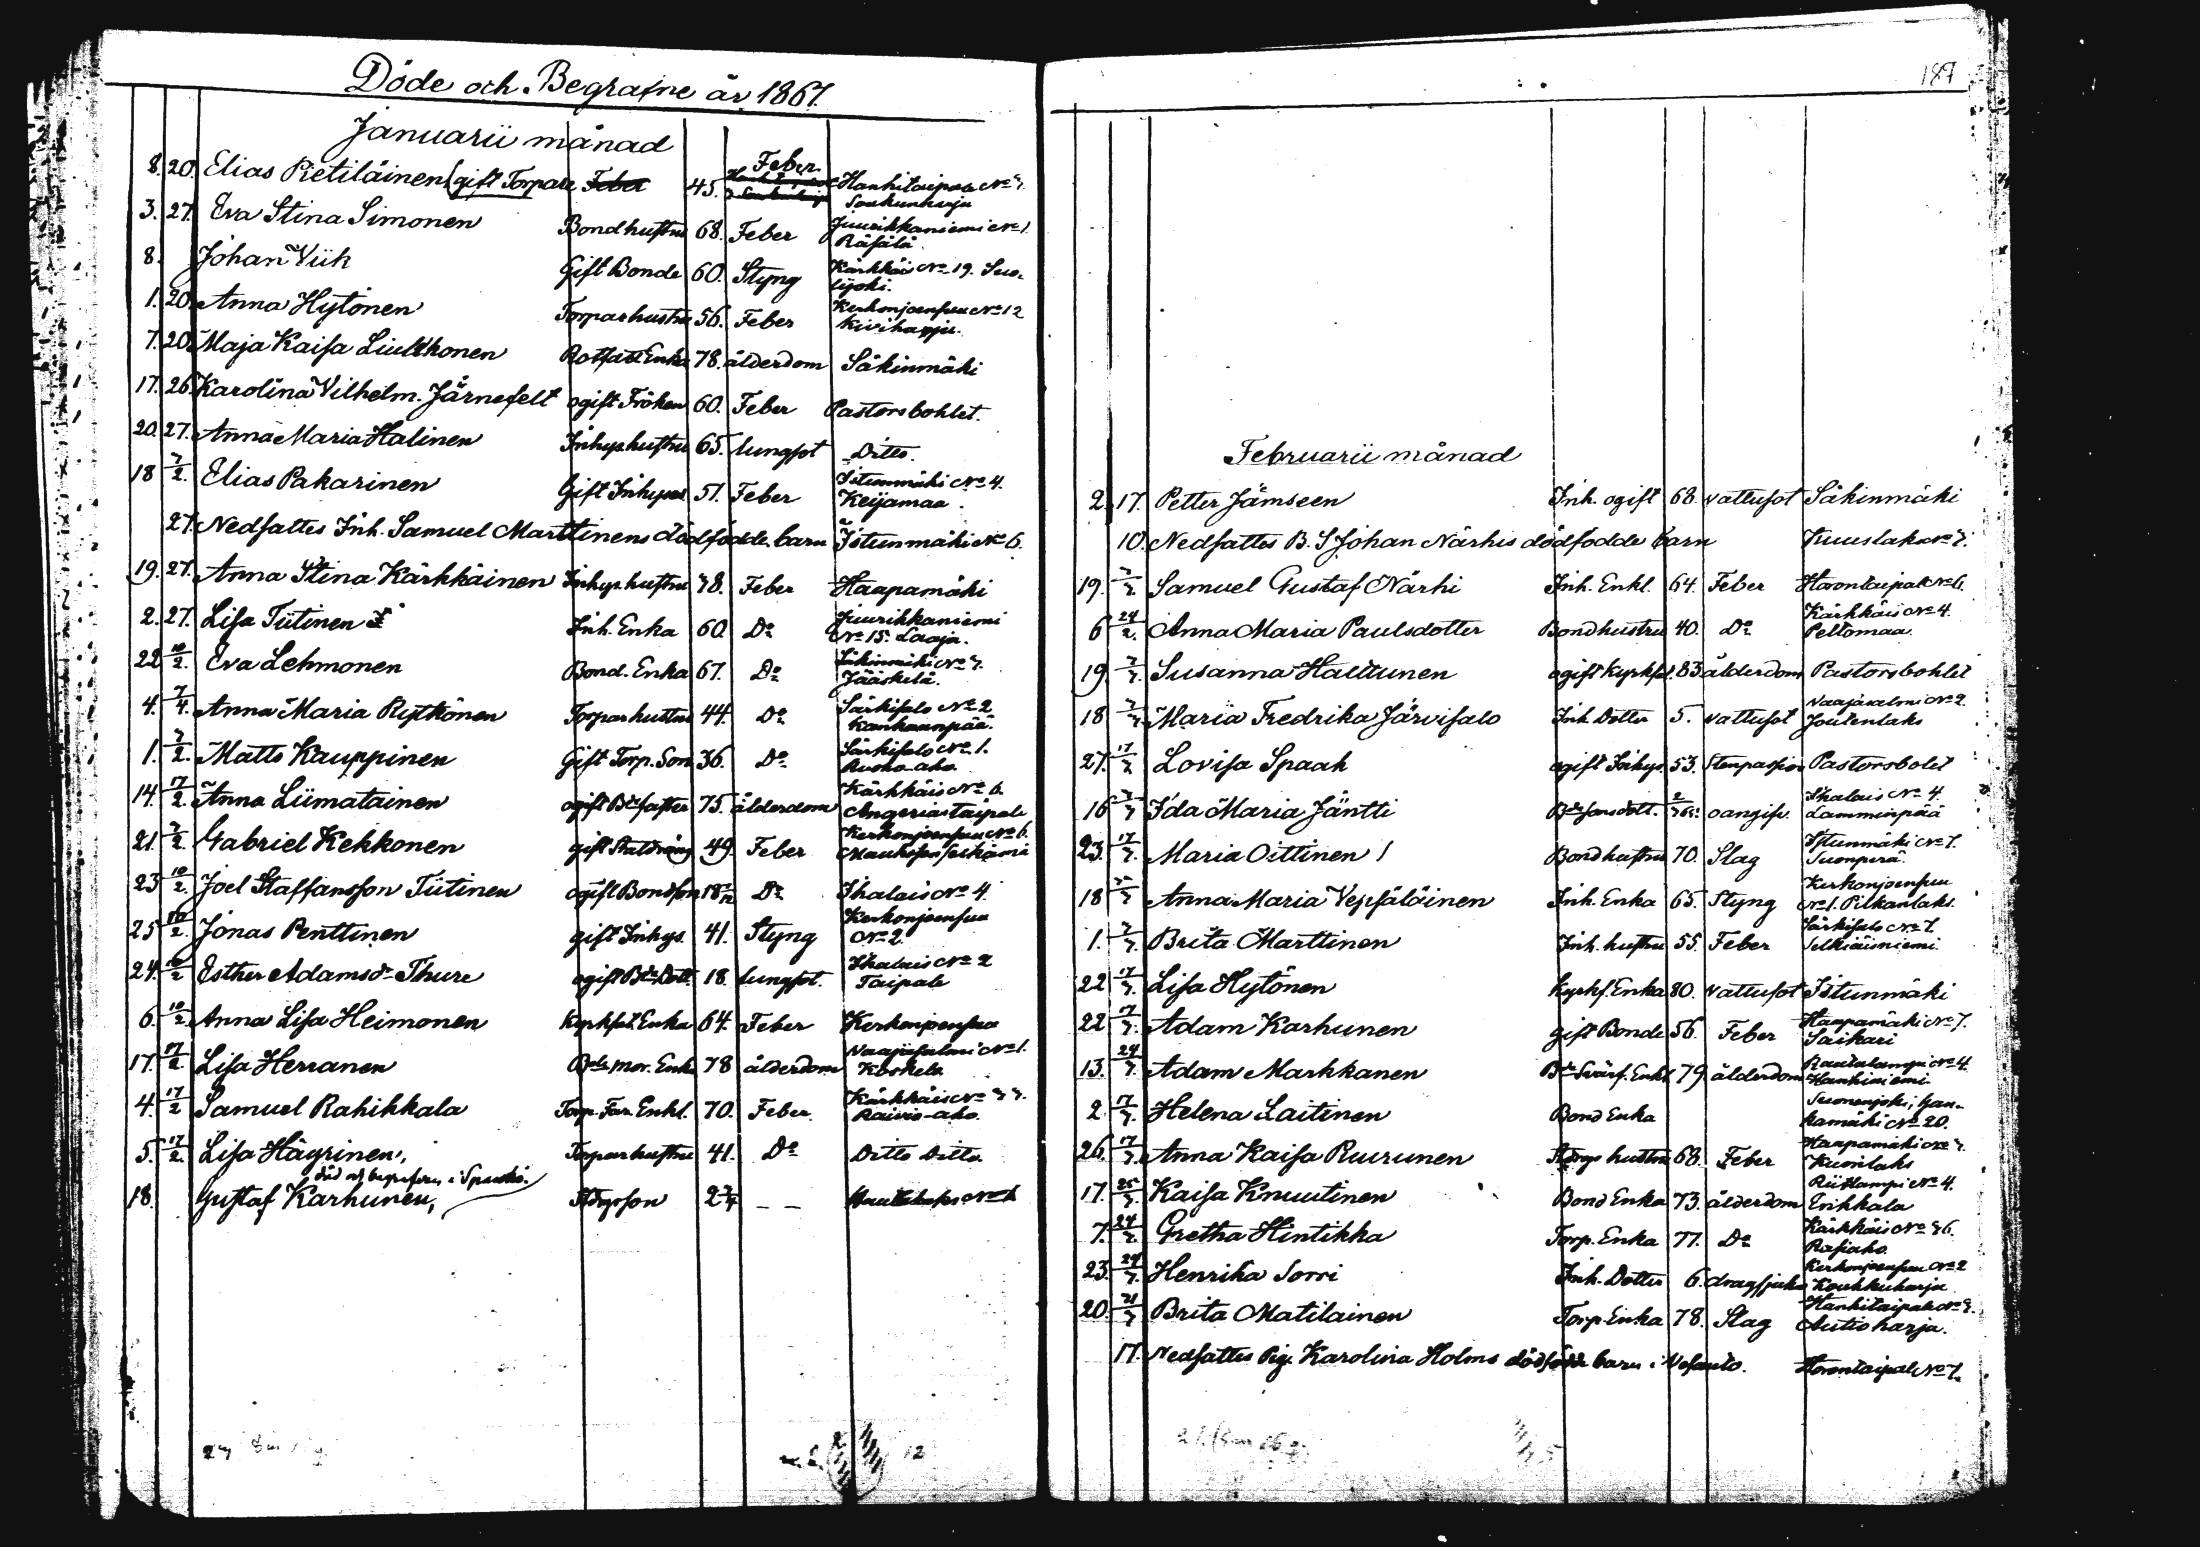 Döde och Begrafne år 1867.
Januarii månad
8. 20. Elias Pietiläinen (gift Torpare Feber 45. Feber Hankitaipale No 7. Soukunharju
3. 27. Eva Stina Simonen Bondhustru 68. Feber Juurikkaniemi No 1. Räsälä
8. Johan Viik Gift Bonde 60. Styng Kärkkäis No 19. Suolijoki.
1. 20. Anna Hytönen Torparhustru 56. Feber Kerkonjoensuu No 12 Kiviharju.
7. 20. Maja Kaisa Liukkonen Enka 78. ålderdom Säkinmäki
17. 26. Karolina Vilhelm. Järnefelt ogift Fröken 60. Feber Pastorsbohlet.
20. 27. Anna Maria Halinen Inhys hustru 65. lungsot Ditto.
18 7/2. Elias Pakarinen Gift Inhyses 51. Feber Istunmäki No 4. Keijamaa.
27. Nedsattes Inh. Samuel Marttinens dödfödde barn Istunmäki No 6.
19. 27. Anna Stina Kärkkäinen Inhys hustru 78. Feber Haapamäki
2. 27. Lisa Tiitinen Inh. Enka 60. Do Juurikkaniemi No 15. Laaja.
22 10/2. Eva Lehmonen Bond. Enka 67. Do Säkinmäki No 7. Jääskelä.
4. Anna Maria Rytkönen Torparhustru 44. Do Särkisalo No 2 Kankaanpää.
1. 7/2. Matts Kauppinen Gift Torp. Son 36. Do Särkisalo No 1. Ruoko-aho
14. 17/2. Anna Liimatainen ogift Bde faster 75. ålderdom Kärkkäis No 6. Angeriastaipale
21. 7/2. Gabriel Kekkonen gift Statdräng 49. Feber Kerkonjoensuu No 6.
23 10/2. Joel Staffansson Tiitinen ogift Bondson 18 Do Ihalais No 4.
25 10/2. Jonas Penttinen gift Inhys. 41. Styng Kerkonjoensuu No 2
24. 10/2 Esther Adamsdr Thure ogift Bde Dott. 18. lungsot. Ihalais No 2 Taipale
6. 10/2. Anna Lisa Heimonen Kyrkfat. Enka 64. Feber Kerkonjoensuu
17. 17/2. Lisa Herranen Bde mor. Enka 78 ålderdom Naajasalmi No 1. Koskelo
4. 17/2 Samuel Rahikkala Torp. Far. Enkl. 70. Feber. Kärkkäis No Raivio-aho.
5. 17/2. Lisa Hägrinen, Torparhustru 41. Do Ditto Ditto.
död och begrafven i
18. Gustaf Karhunen, son 2 – –
12
187
Februarii månad
2. 17. Petter Jämseen Inh. ogift 68. vattusot Säkinmäki
10. Nedsattes B. S Johan Närhis dödfödde barn Kuuslaks No 7.
19. Samuel Gustaf Närhi Inh. Enkl. 64. Feber Havontaipale No 6.
6 24/2. Anna Maria Paulsdotter Bondhustru 40. Do Kärkkäis No 4. Peltomaa.
19 Susanna Halttunen ogift Kyrkfat. 83 ålderdom Pastorsbohlet
18 Maria Fredrika Järvisalo Inh. Dotter 5. vattusot Naajasalmi No 2. Joutenlaks
27. Lovisa Spaak ogift Inhys. 53. Stenpassion Pastorsbolet
16 Ida Maria Jäntti oangifv. Ihalais No 4. Lamminpää
23. Maria Oittinen Bondhustru 70. Slag Istunmäki No 7. Suonperä.
18 Anna Maria Vepsäläinen Inh. Enka 65. Styng Kerkonjoensuu No 1. Pitkänlaks.
1. Brita Marttinen Inh. hustru 55. Feber Särkisalo No 7. Selkiäisniemi.
22 Lisa Hytönen Kyrkf. Enka 80. vattusot Istunmäki
22 Adam Karhunen gift Bonde 56. Feber Haapamäki No 7. Saikari
13. Adam Markkanen Bde Svärf. Enkl. 79. ålderdom Rautalampi No 4. Hankiniemi
2 Helena Laitinen Bond Enka Suonenjoki, No 20.
26. Anna Kaisa Ruurunen hustru 68. Feber Haapamäki No 7. Kuonlaks
17. Kaisa Knuutinen Bond Enka 73. ålderdom Riitlampi No 4. Erikkala
7. Gretha Hintikka Torp. Enka 77. Do Kärkkäis No 36. Rasiaho.
23. Henrika Sorri Inh. Dotter 6. dragsjuka Kerkonjoensuu No 2 Koukkuharju
20. Brita Matilainen Torp. Enka 78. Slag Hankitaipale No 7. Autioharja.
17. Nedsattes Pig. Karolina Holms dödfödde barn i Vesanto. Havontaipale No 7.